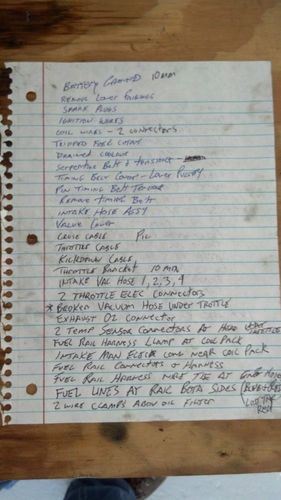 BATTERY GROUND 10mm
REMOVE LOWER
SPARK PLUGS
IGNITION WIRES
COIL WIRES - 2 CONNECTORS
TRIPPED FUEL CUTOFF
DRAINED COOLANT
SERPENTINE BELT & TENSIONER -
TIMING BELT COVER - LOWER PULLEY
PIN TIMING BELT TENSIONER
REMOVE TIMING BELT
INTAKE HOSE ASSY
VALVE COVER
CRUISE CABLE PIC
THROTTLE CABLE
KICKDOWN CABLE
THROTTLE BRACKET 10 mm
INTAKE VAC HOSE 1, 2, 3, 4
2 THROTTLE ELEC CONNECTORS
* BROKEN VACUUM HOSE UNDER TROTTLE
EXHAUST O2 CONNECTOR
2 TEMP SENSOR CONNECTORS AT HEAD UNDER THROTTLE
FUEL RAIL HARNESS CLAMP AT COIL PACK
INTAKE MAN ELECTR CONN NEAR COIL PACK
FUEL RAIL CONNECTORS & HARNESS
FUEL RAIL HARNESS WIRE TIE AT
FUEL LINES AT RAIL BOTH SIDES
2 WIRE CLAMPS ABOV OIL FILTER